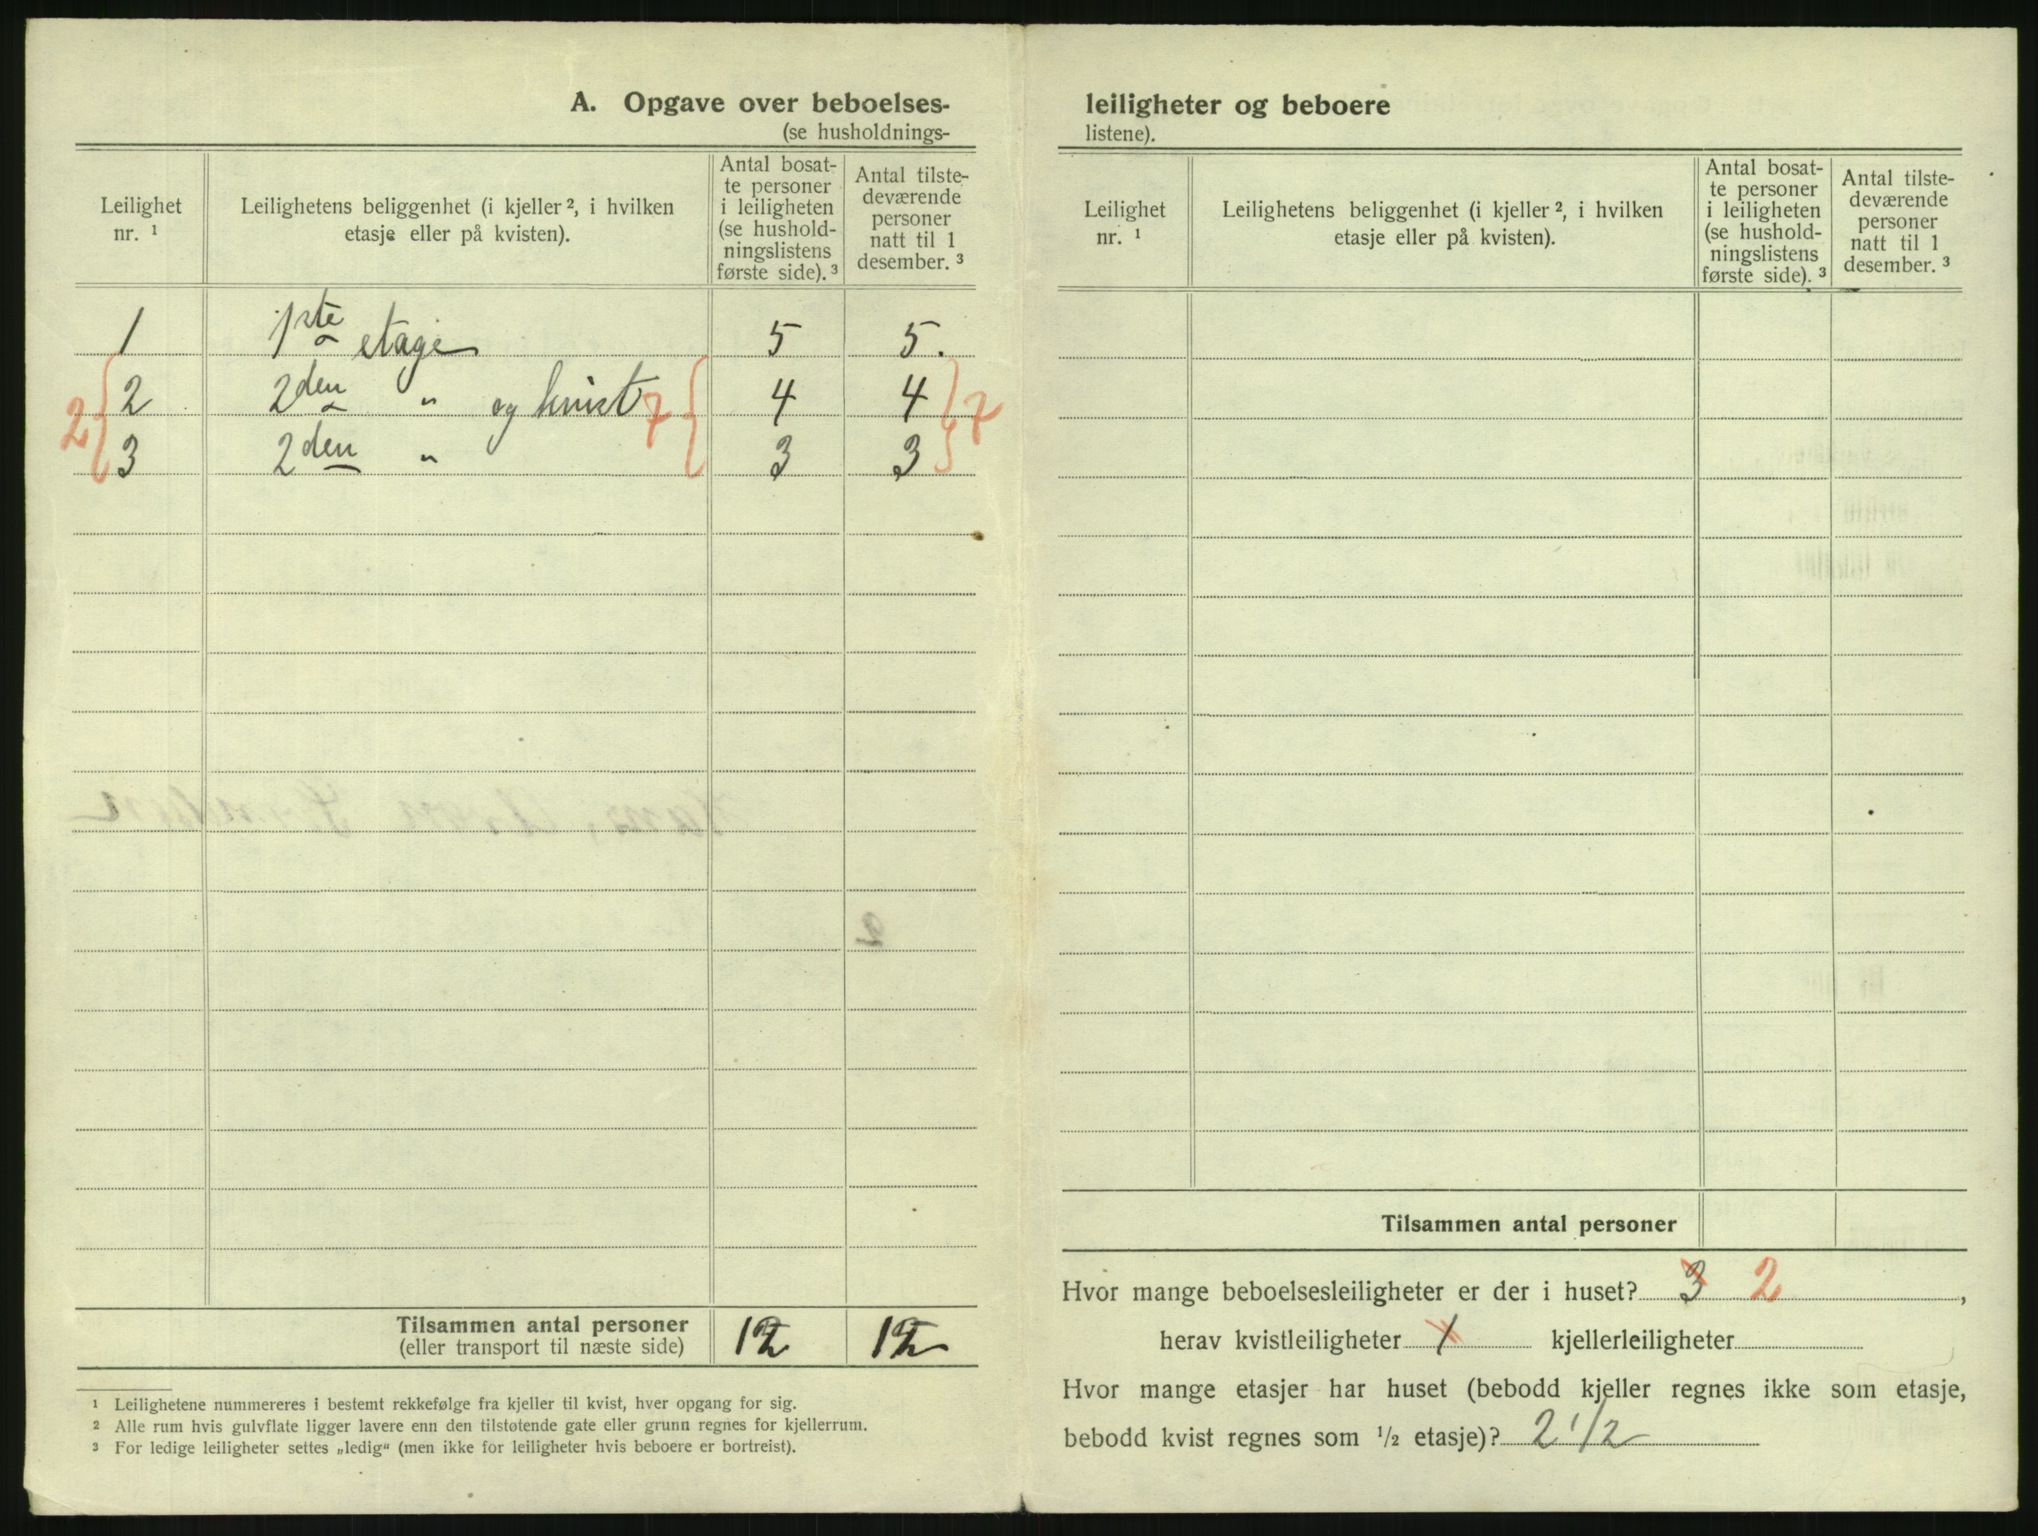 A. Opgave over beboelses-
(se husholdnings-
Leilighet nr. ¹
Leilighetens beliggenhet (i kjeller ², i hvilken etasje eller på kvisten).
Antal bosat-
te personer
i leiligheten
(se hushold-
ningslistens
første side). ³
Antal tilste-
deværende
personer
natt til 1
desember. ³
1 1ste etage 5 5.
2 2den " og kvist 7 4 4 7
2
3 2den " 3 3
Tilsammen antal personer 12 12
(eller transport til næste side)
¹ Leilighetene nummereres i bestemt rekkefølge fra kjeller til kvist, hver opgang for sig.
² Alle rum hvis gulvflate ligger lavere enn den tilstøtende gate eller grunn regnes for kjellerrum.
³ For ledige leiligheter settes „ledig" (men ikke for leiligheter hvis beboere er bortreist).
leiligheter og beboere
listene).
Leilighet nr. ¹
Leilighetens beliggenhet (i kjeller ², i hvilken etasje eller på kvisten).
Antal bosat-
te personer
i leiligheten
(se hushold-
ningslistens
første side). ³
Antal tilste-
deværende
personer
natt til 1
desember. ³
Tilsammen antal personer
Hvor mange beboelsesleiligheter er der i huset? 3 2,
herav kvistleiligheter 1 kjellerleiligheter
Hvor mange etasjer har huset (bebodd kjeller regnes ikke som etasje,
bebodd kvist regnes som ½ etasje)? 2 1/2